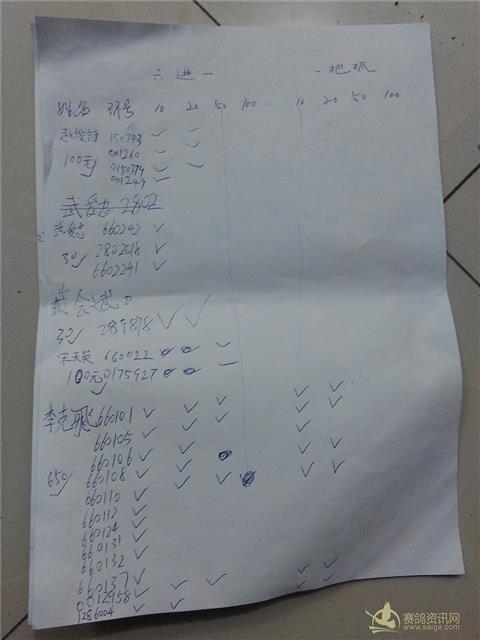 六进一 一把抓
姓名 环号 10 20 50 100 10 20 50 100
赵俊锋 150743 ✓ ✓
001260 ✓ ✓
100元 0150379 ✓ ✓
001249 ✓
武爱忠 2802
武爱忠 660242 ✓
2802018 ✓
30 6602241 ✓
30 289878 ✓ ✓
宋天荣 660022 ✓
100元 0175927
李克飛 660101 ✓ ✓ ✓ ✓ ✓
660105 ✓ ✓ ✓ ✓ ✓
660106 ✓ ✓ ✓ ✓
650 660108 ✓ ✓ ✓ ✓ ✓
660110 ✓
660112 ✓
660124 ✓
660131 ✓
660132 ✓
660137 ✓ ✓ ✓
0812958 ✓ ✓ ✓ ✓ ✓
1286004 ✓ ✓
赛鸽资讯网
www.saige.com